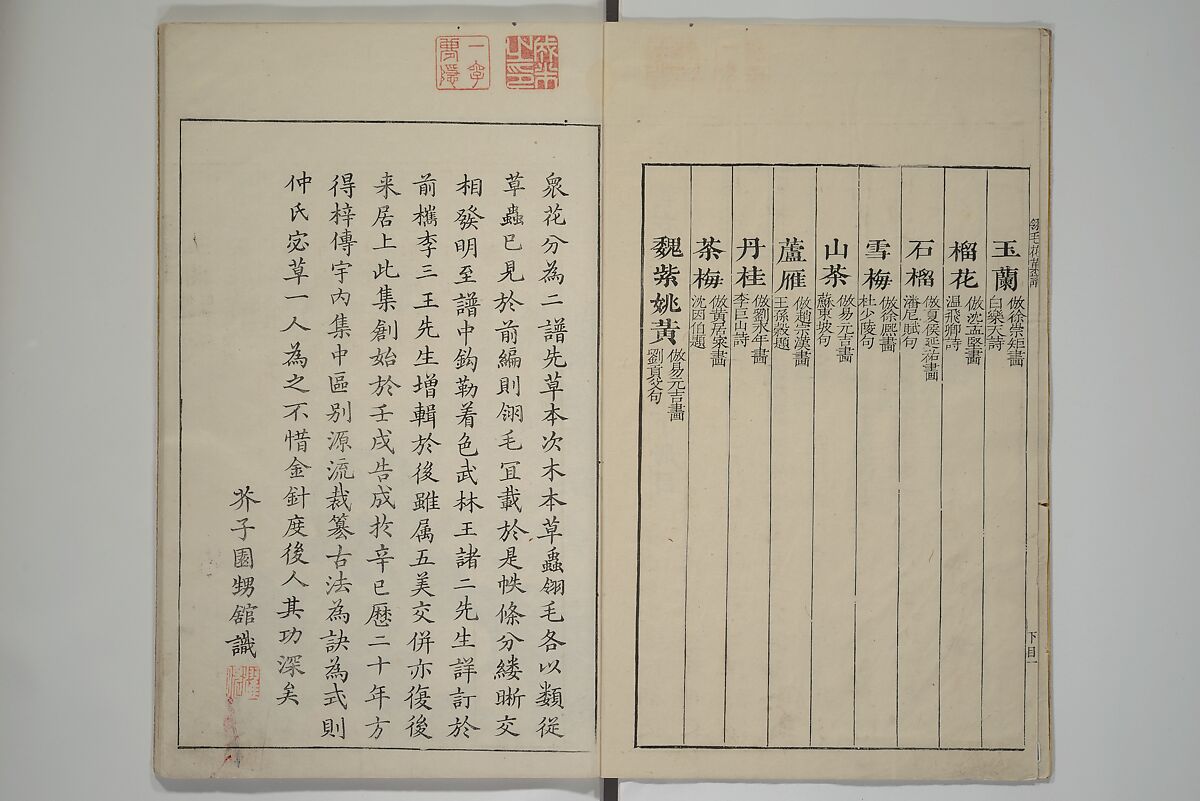 玉蘭 倣徐崇矩畵
白樂天詩
榴花 倣沈孟堅畵
溫飛卿詩
石榴 倣夏侯延祐畵
潘尼賦句
雪梅 倣徐熙畵
杜少陵句
山茶 倣易元吉畵
蘇東坡句
蘆雁 倣趙宗漢畵
王孫穀題
丹桂 倣劉永年畵
李巨山詩
茶梅 倣黃居寀畵
沈因伯題
魏紫姚黃 倣易元吉畵
劉貢父句
下目一
衆花分為二譜先草本次木本草蟲翎毛各以類從
草蟲已見於前編則翎毛冝載於是帙條分縷晰交
相發明至譜中鈎勒着色武林王諸二先生詳訂於
前檇李三王先生增輯於後雖属五美交併亦復後
来居上此集創始於壬戌告成於辛巳歷二十年方
得梓傳宇內集中區別源流裁纂古法為訣為式則
仲氏宓草一人為之不惜金針度後人其功深矣
芥子園甥舘識